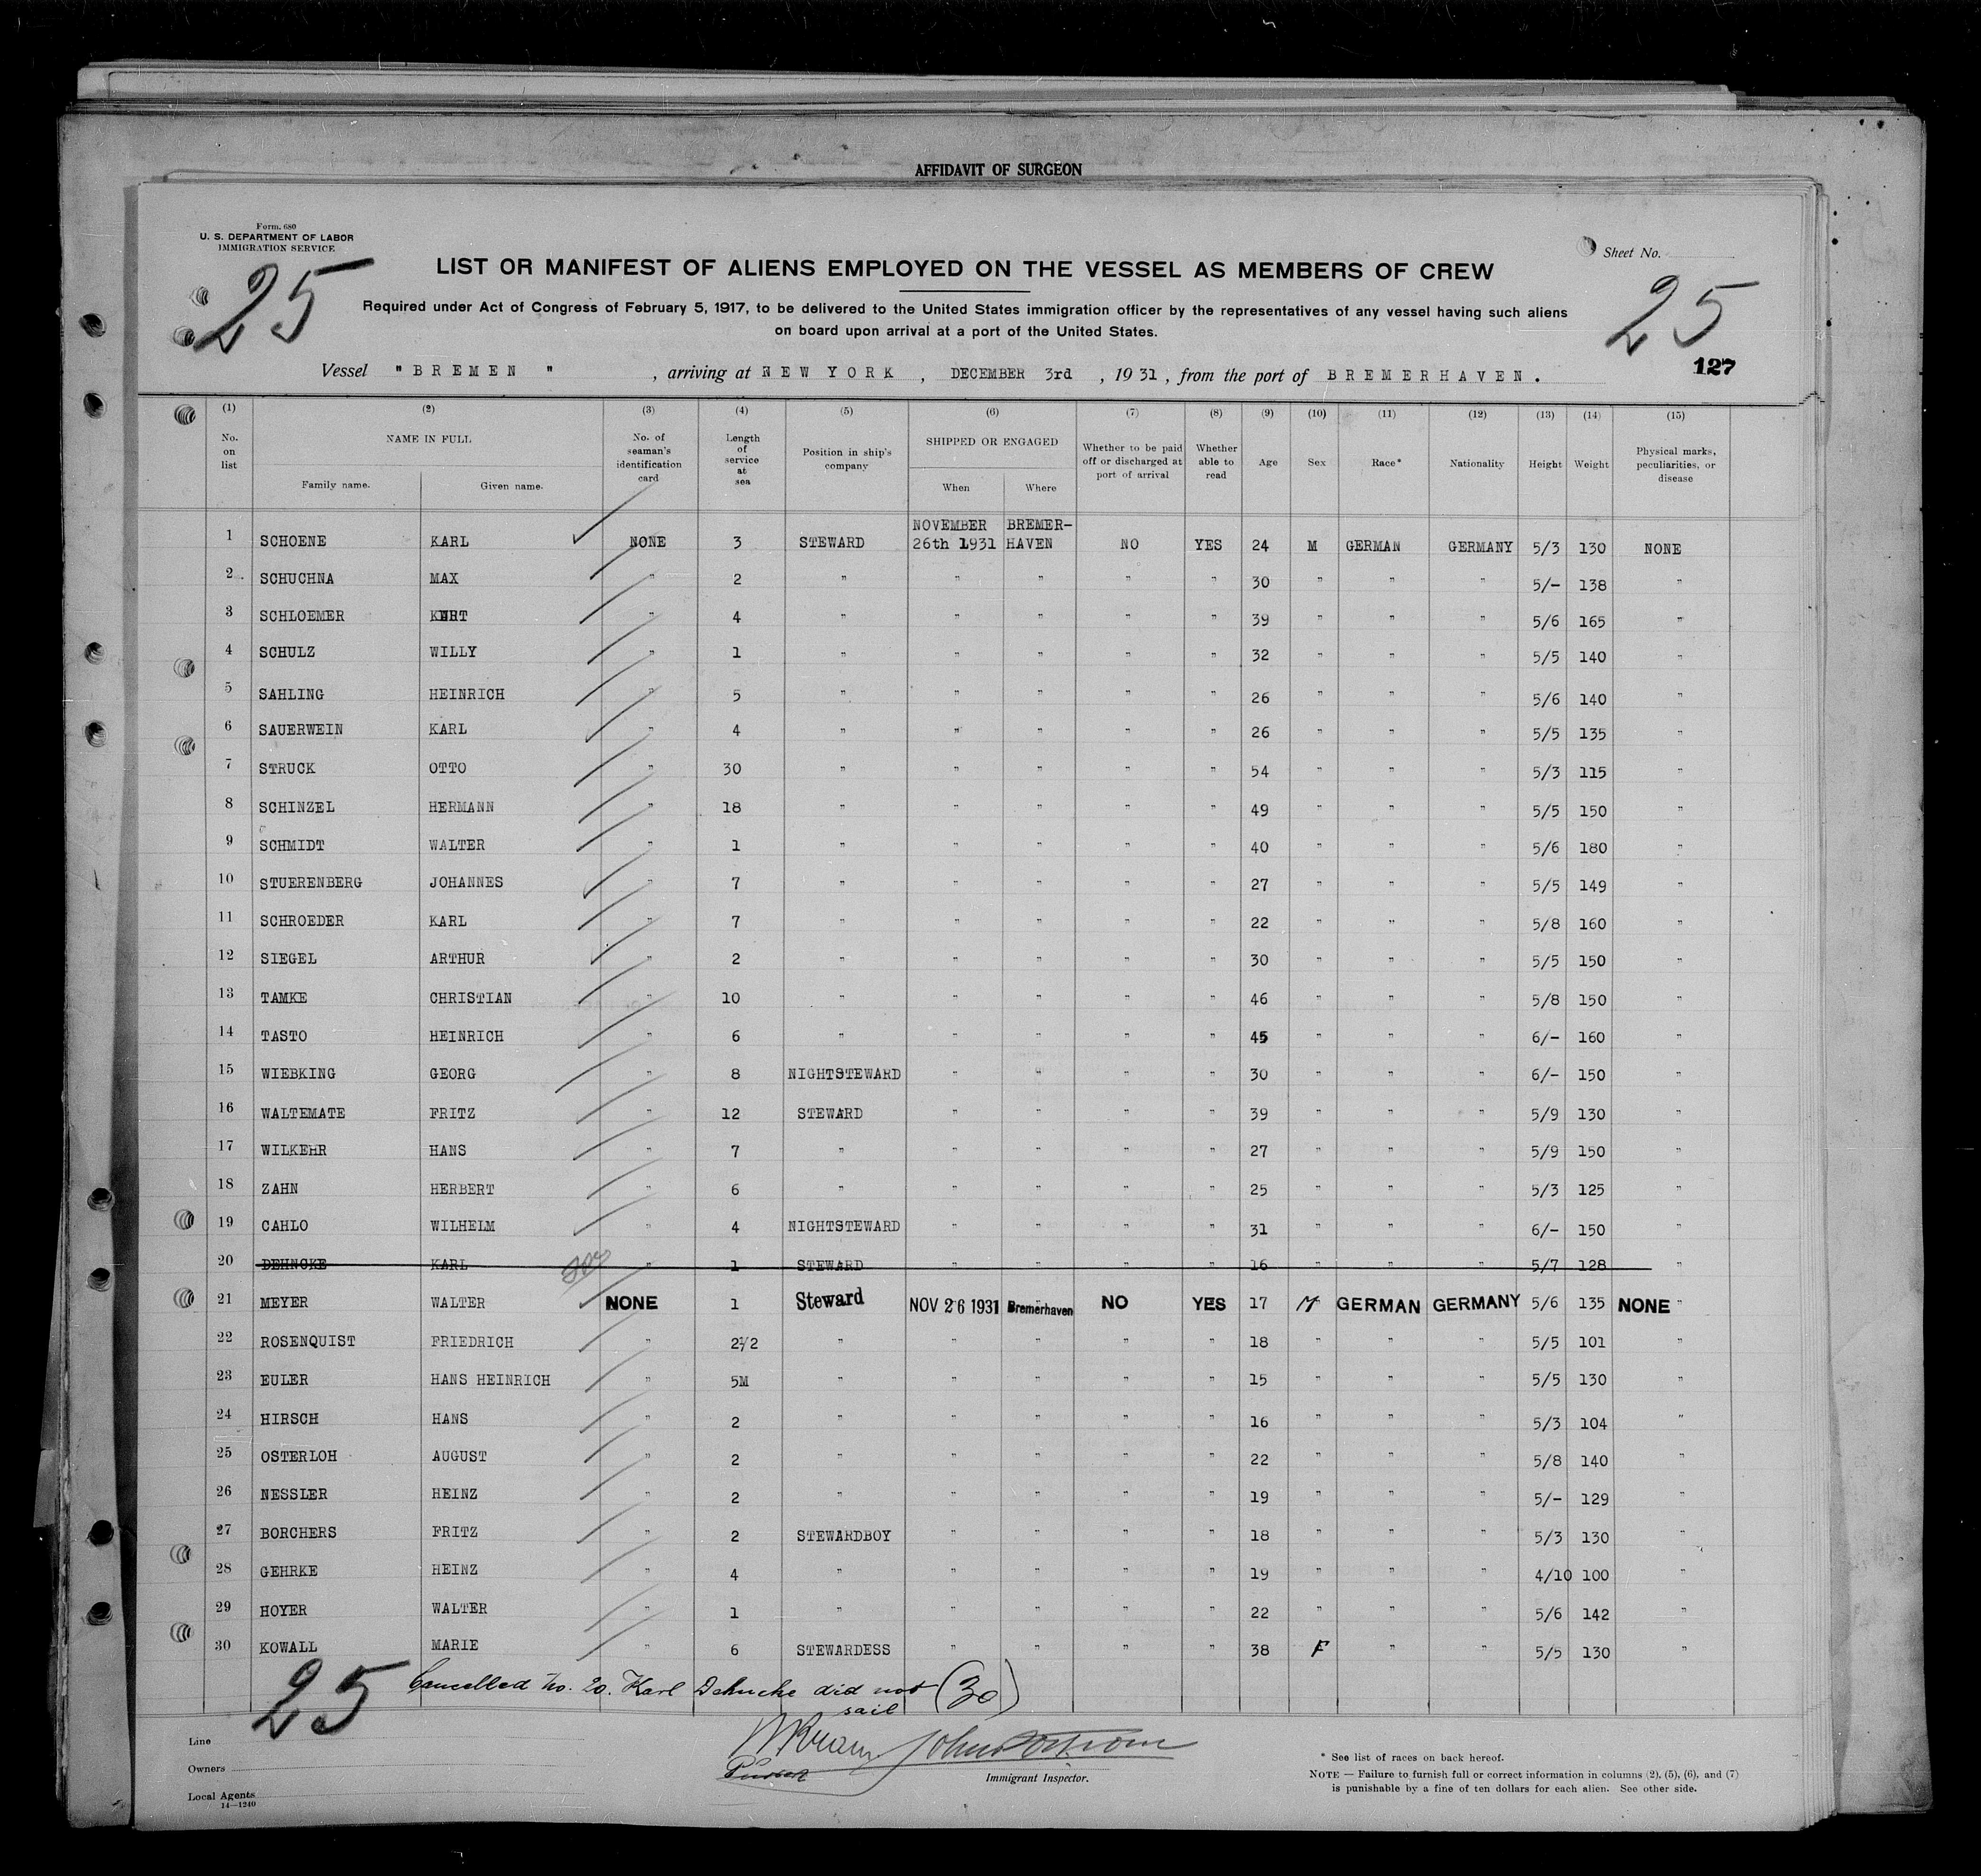 AFFIDAVIT OF SURGEON
Form. 680
U. S. DEPARTMENT OF LABOR
IMMIGRATION SERVICE
Sheet No.
25
25
127
LIST OR MANIFEST OF ALIENS EMPLOYED ON THE VESSEL AS MEMBERS OF CREW
Required under Act of Congress of February 5, 1917, to be delivered to the United States immigration officer by the representatives of any vessel having such aliens
on board upon arrival at a port of the United States.
Vessel " BREMEN " , arriving at NEW YORK , DECEMBER 3rd , 1931, from the port of BREMERHAVEN.
(1) (2) (3) (4) (5) (6) (7) (8) (9) (10) (11) (12) (13) (14) (15)
No. on list NAME IN FULL No. of seaman's identification card Length of service at sea Position in ship's company SHIPPED OR ENGAGED Whether to be paid off or discharged at port of arrival Whether able to read Age Sex Race* Nationality Height Weight Physical marks, peculiarities, or disease
Family name. Given name. When Where
1 SCHOENE KARL NONE 3 STEWARD NOVEMBER 26th 1931 BREMER-HAVEN NO YES 24 M GERMAN GERMANY 5/3 130 NONE
2 SCHUCHNA MAX " 2 " " " " " 30 " " " 5/- 138 "
3 SCHLOEMER " 4 " " " " " 39 " " " 5/6 165 "
4 SCHULZ WILLY " 1 " " " " " 32 " " " 5/5 140 "
5 SAHLING HEINRICH " 5 " " " " " 26 " " " 5/6 140 "
6 SAUERWEIN KARL " 4 " " " " " 26 " " " 5/5 135 "
7 STRUCK OTTO " 30 " " " " " 54 " " " 5/3 115 "
8 SCHINZEL HERMANN " 18 " " " " " 49 " " " 5/5 150 "
9 SCHMIDT WALTER " 1 " " " " " 40 " " " 5/6 180 "
10 STUERENBERG JOHANNES " 7 " " " " " 27 " " " 5/5 149 "
11 SCHROEDER KARL " 7 " " " " " 22 " " " 5/8 160 "
12 SIEGEL ARTHUR " 2 " " " " " 30 " " " 5/5 150 "
13 TAMKE CHRISTIAN " 10 " " " " " 46 " " " 5/8 150 "
14 TASTO HEINRICH " 6 " " " " " 45 " " " 6/- 160 "
15 WIEBKING GEORG " 8 NIGHTSTEWARD " " " " 30 " " " 6/- 150 "
16 WALTEMATE FRITZ " 12 STEWARD " " " " 39 " " " 5/9 130 "
17 WILKEHR HANS " 7 " " " " " 27 " " " 5/9 150 "
18 ZAHN HERBERT " 6 " " " " " 25 " " " 5/3 125 "
19 CAHLO WILHELM " 4 NIGHTSTEWARD " " " " 31 " " " 6/- 150 "
20 DEHNCKE KARL " 1 STEWARD " " " " 16 " " " 5/7 128 "
21 MEYER WALTER NONE 1 Steward NOV 26 1931 Bremerhaven NO YES 17 M GERMAN GERMANY 5/6 135 NONE "
22 ROSENQUIST FRIEDRICH " 2½ " " " " " 18 " " " 5/5 101 "
23 EULER HANS HEINRICH " 5M " " " " " 15 " " " 5/5 130 "
24 HIRSCH HANS " 2 " " " " " 16 " " " 5/3 104 "
25 OSTERLOH AUGUST " 2 " " " " " 22 " " " 5/8 140 "
26 NESSLER HEINZ " 2 " " " " " 19 " " " 5/- 129 "
27 BORCHERS FRITZ " 2 STEWARDBOY " " " " 18 " " " 5/3 130 "
28 GEHRKE HEINZ " 4 " " " " " 19 " " " 4/10 100 "
29 HOYER WALTER " 1 " " " " " 22 " " " 5/6 142 "
30 KOWALL MARIE " 6 STEWARDESS " " " " 38 F " " 5/5 130 "
25 Cancelled No. 20. Karl Dehncke did not sail (30)
Line
Owners
Local Agents
14—1240
Purser
Immigrant Inspector.
* See list of races on back hereof.
NOTE — Failure to furnish full or correct information in columns (2), (5), (6), and (7)
is punishable by a fine of ten dollars for each alien. See other side.